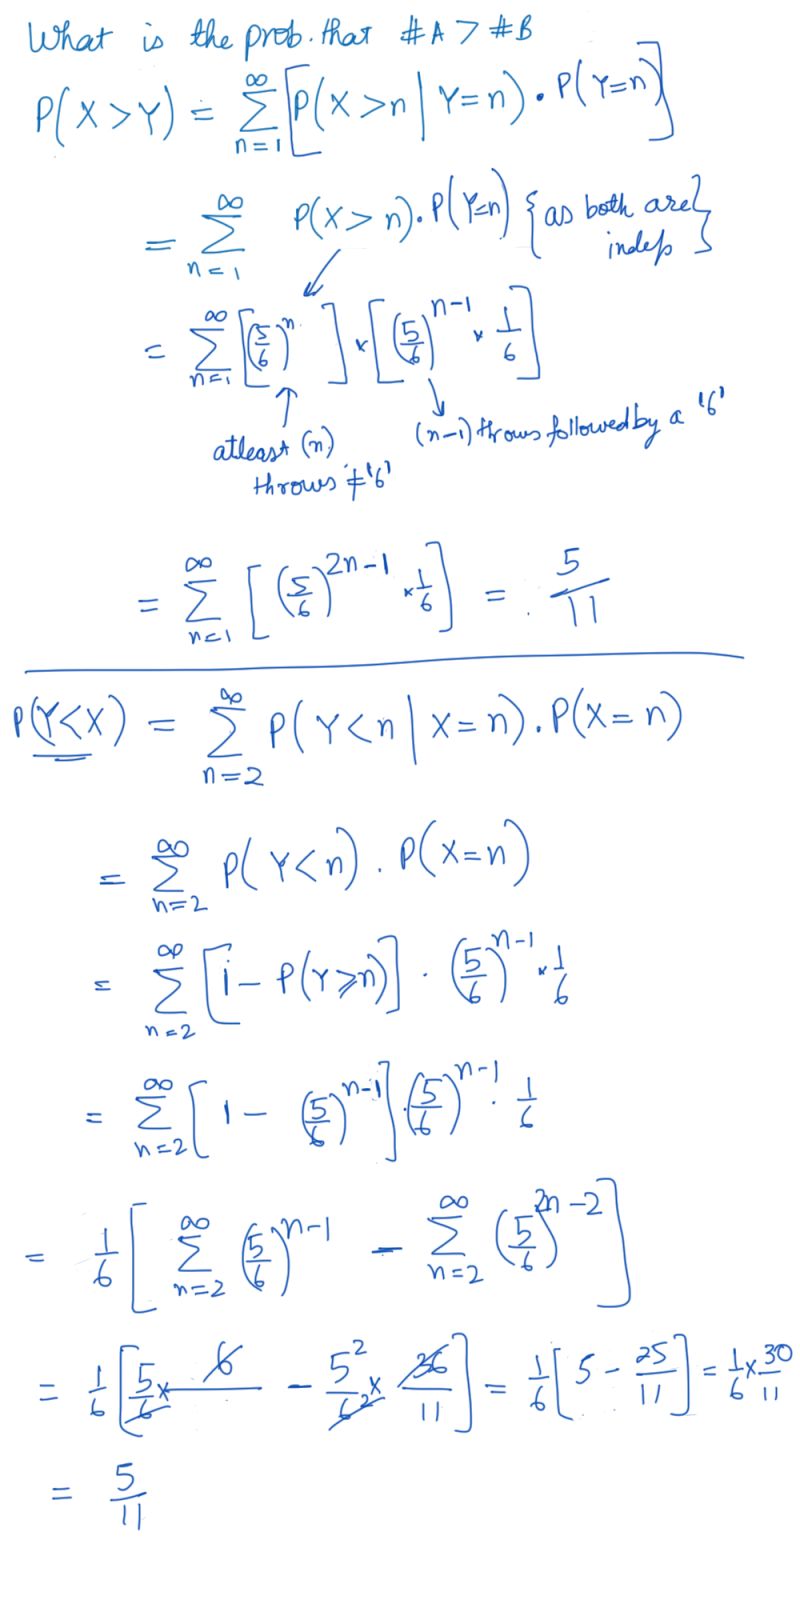 What is the prob. that #A > #B
P(X>Y) = ∞ Σ n=1 [P(X>n | Y=n) • P(Y=n)]
= ∞ Σ n=1 P(X>n). P(Y=n) {as both are indep}
= ∞ Σ n=1 [(5/6)^n] × [(5/6)^n-1 × 1/6]
atleast (n) throws ≠ '6'
(n-1) throws followed by a '6'
= ∞ Σ n=1 [(5/6)^2n-1 × 1/6] = 5/11
P(Y<X) = ∞ Σ n=2 P(Y<n | X=n). P(X=n)
= ∞ Σ n=2 P(Y<n). P(X=n)
= ∞ Σ n=2 [1 - P(Y⩾n)] . (5/6)^n-1 × 1/6
= ∞ Σ n=2 [1 - (5/6)^n-1] . (5/6)^n-1 . 1/6
= 1/6 [∞ Σ n=2 (5/6)^n-1 - ∞ Σ n=2 (5/6)^2n-2]
= 1/6 [5/6 × 6 - 5^2/6^2 × 36/11] = 1/6 [5 - 25/11] = 1/6 × 30/11
= 5/11